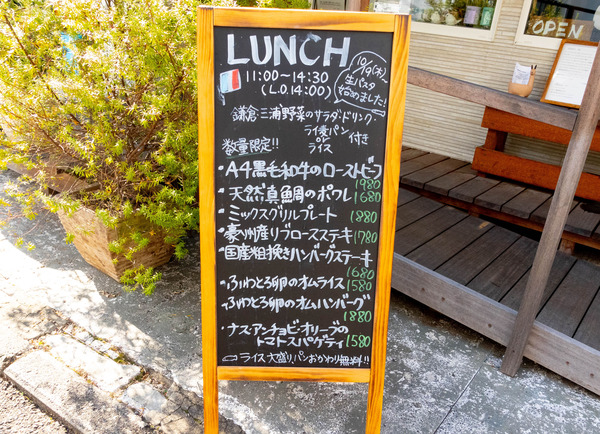 LUNCH
11:00〜14:30
(L.O.14:00)
10/9(木)
生パスタ
始めました!
鎌倉三浦野菜のサラダ・ドリンク
ライ麦パン
or
ライス
付き
数量限定!!
・A4黒毛和牛のローストビーフ
1980
・天然真鯛のポワレ 1680
・ミックスグリルプレート 1880
・豪州産リブロースステキ 1780
・国産粗挽きハンバーグステーキ
1680
・ふわとろ卵のオムライス 1580
・ふわとろ卵のオムハンバーグ
1880
・ナス・アンチョビ・オリーブの
トマトスパゲティ 1580
ライス大盛り、パンおかわり無料!!
OPEN